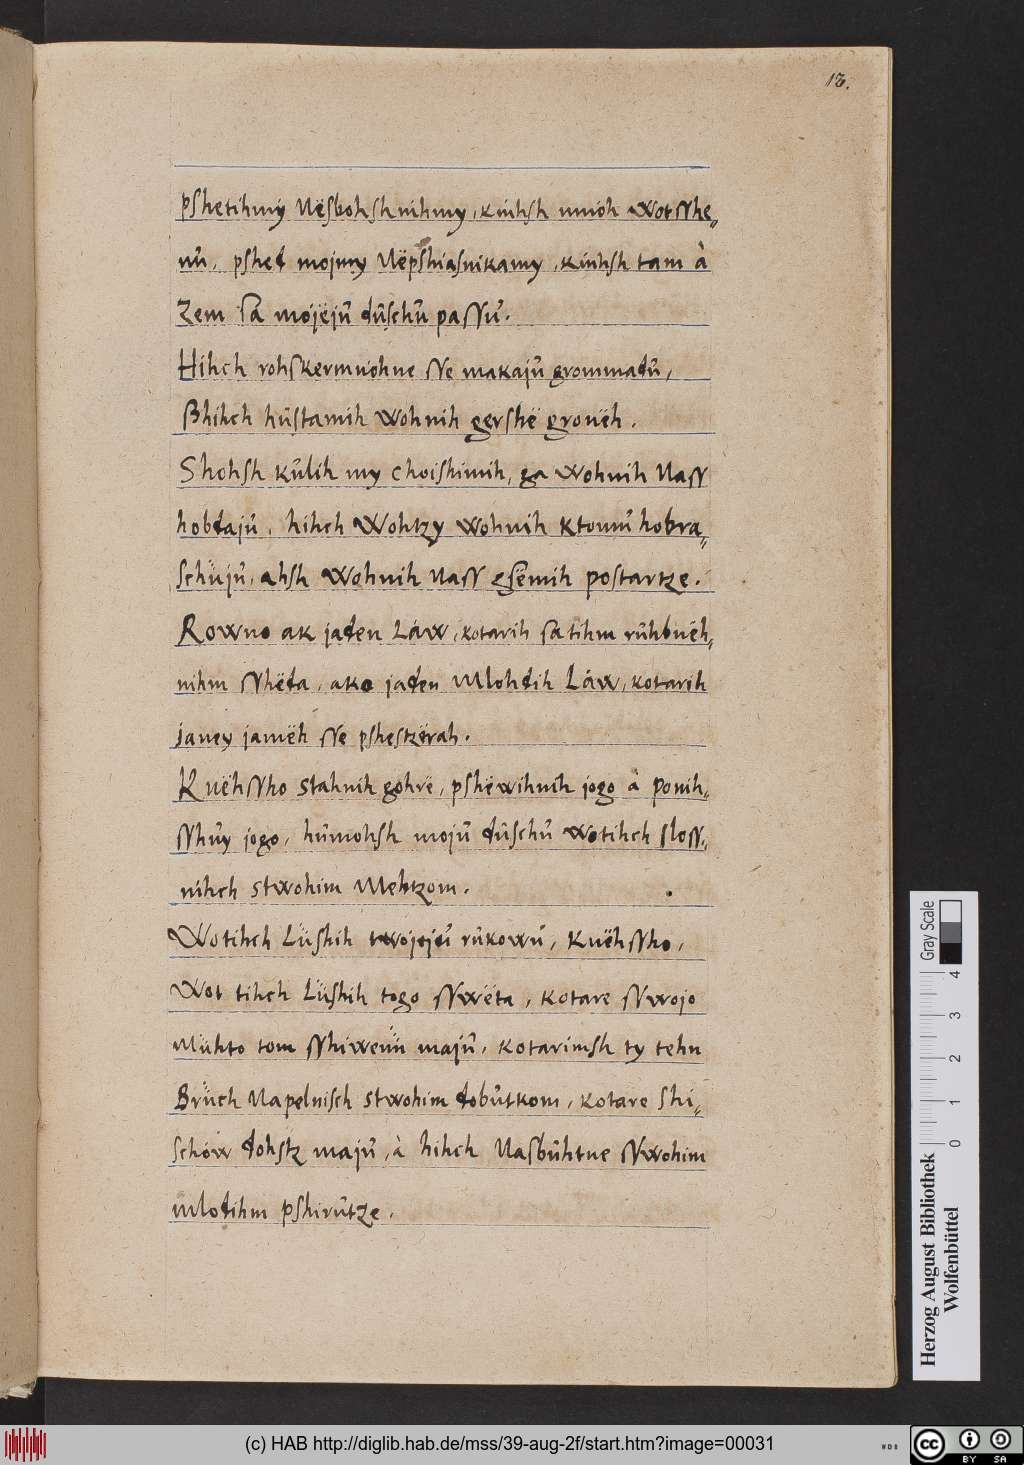 13.
pshetihmÿ Nësbohshnihmy, knihsh mnioh wotsshe⸗
nů, pshed mojmy Nëpshiasnikamy, knihsh tam à
Zem sa mojëjů důschů passů.
Hihch rohskermnohne sse makajů grommadů,
Bhihch hůstamih wohnih gershë gronëh.
Shohsh kůlih my choishimih, ga wohnih Nass
hobdajů, hihch Wohtzy wohnih ktomů hobra⸗
schüjů, ahsh wohnih Nass gsemih postartze.
Rowno ak jaden Làw, kotarih sa tihm růhbnëh⸗
nihm sshëda, ako jaden Mlohdih Làw, kotarih
janey jamëh sse pshestzërah.
Knëhssho stahnih gohrë, pshëwihnih jogo à ponih⸗
sshůy jogo, hůmohsh mojů důschů wotihch sloss⸗
nihch stwohim Mehtzom.
Wotihch Lüshih twojejů růkowů, Knëhssho,
Wot tihch Lüshih togo sswëta, kotare sswojo
Mühto tom sshiwenü majů, kotarimsh ty tehn
Brüch Napelnisch stwohim dobůtkom, kotare shi⸗
schow dohstz majů, à hihch Nasbůhtne sswohim
mlodihm pshirůtze.
Herzog August Bibliothek
Wolfenbüttel
0 1 2 3 4
Gray Scale
(c) HAB http://diglib.hab.de/mss/39-aug-2f/start.htm?image=00031
WDB
cc BY SA